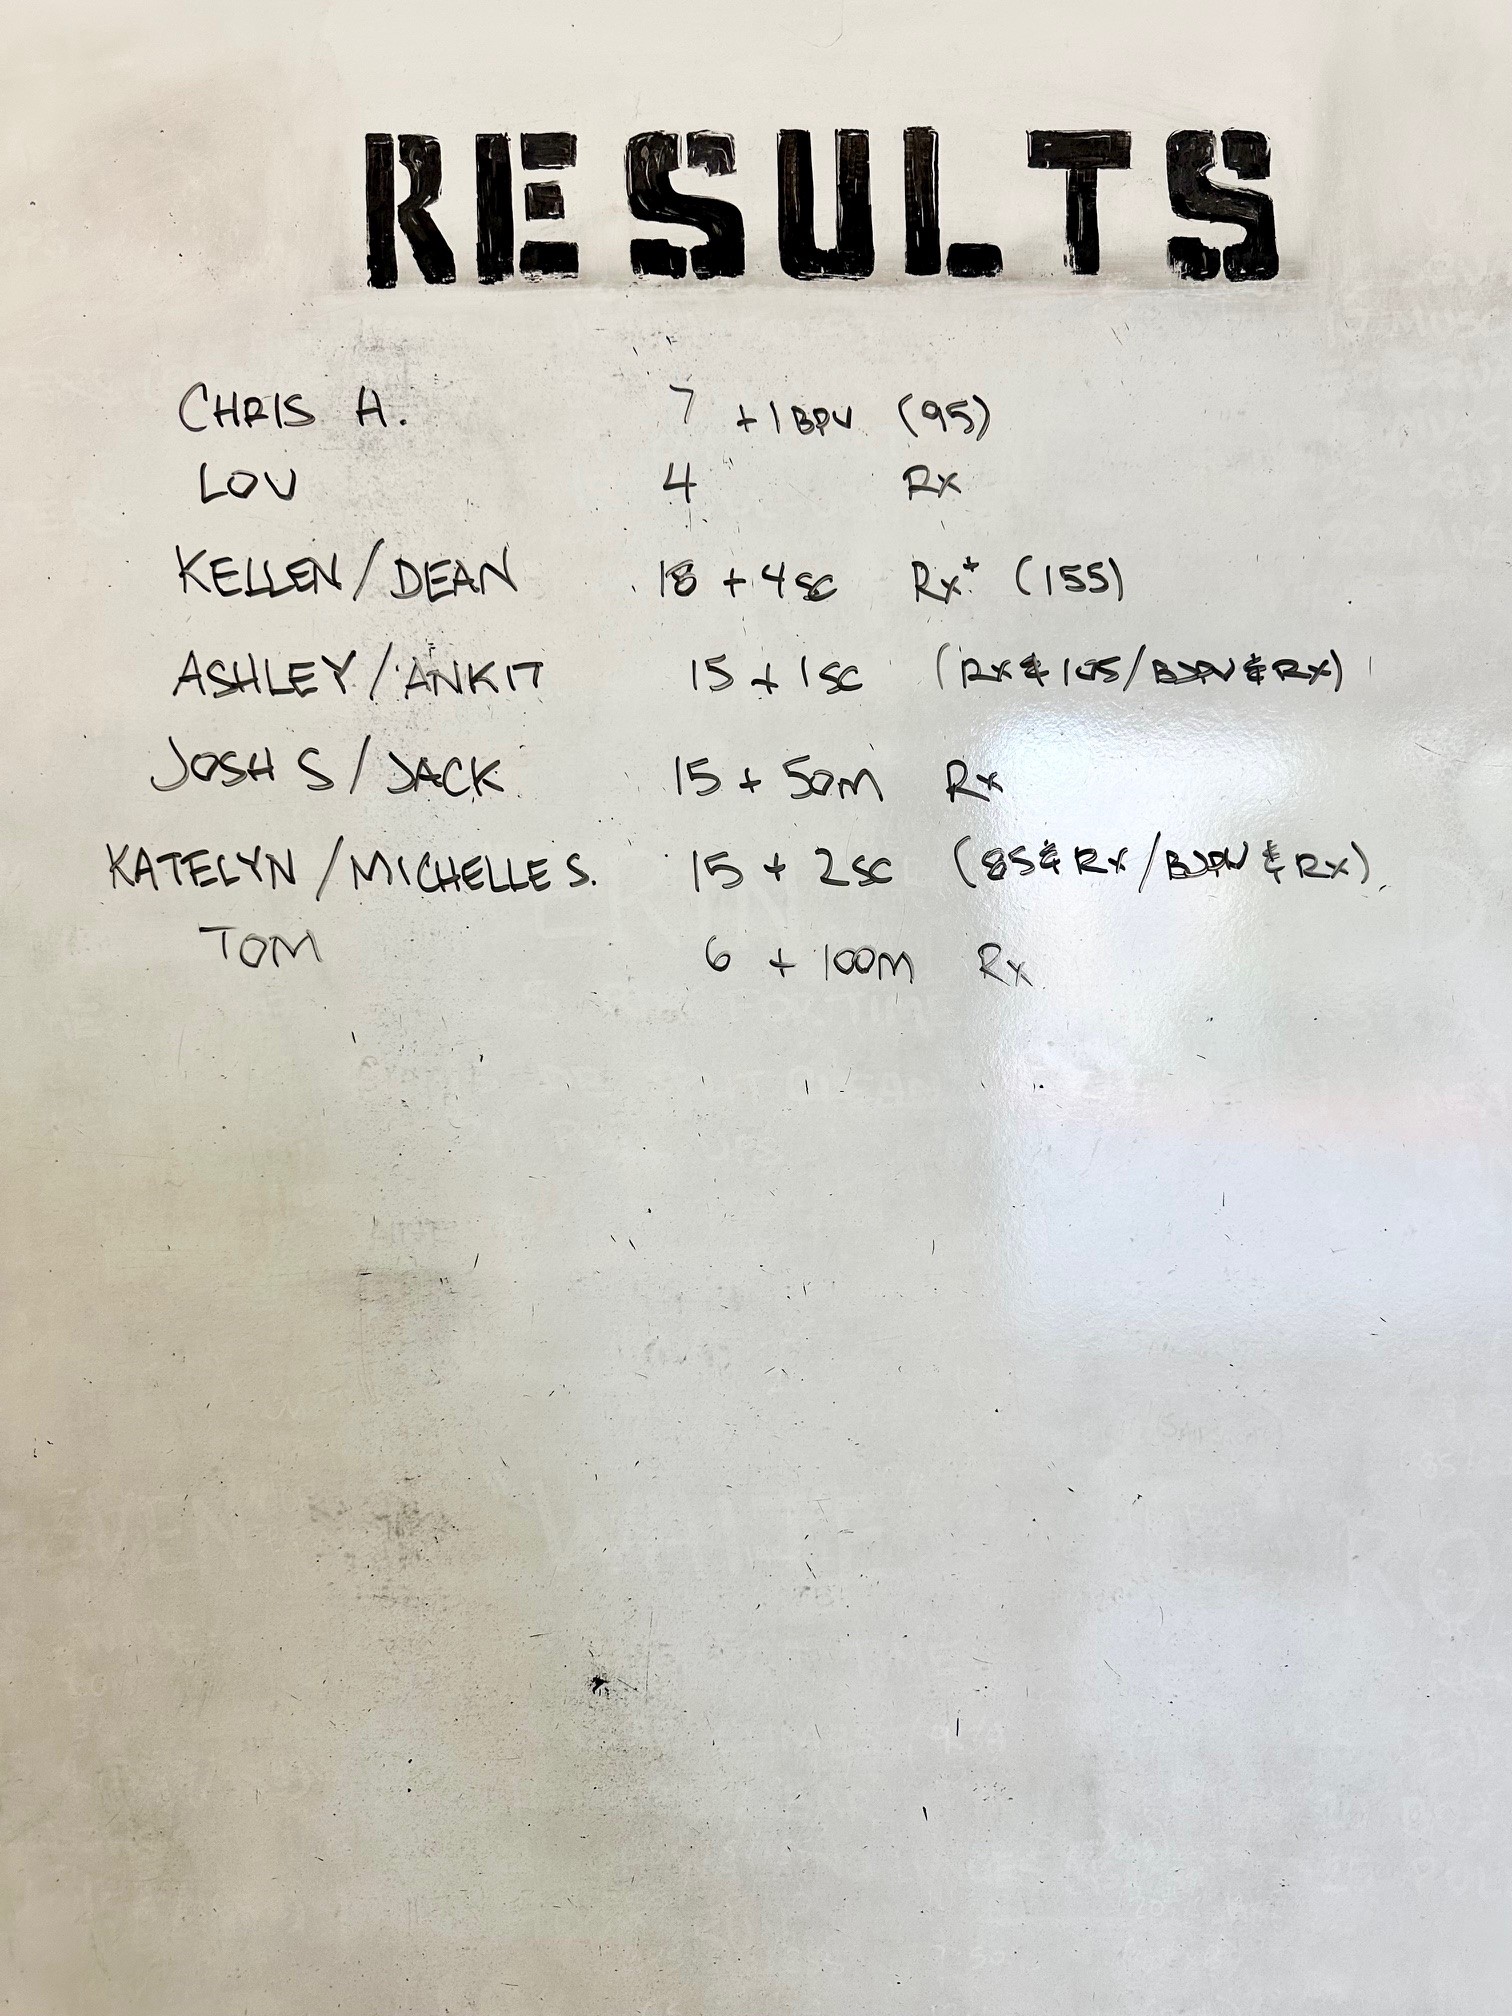 RESULTS
CHRIS H. 7 +1 BPU (95)
LOU 4 Rx
KELLEN/DEAN 18 + 4 SC Rx+ (155)
ASHLEY/ANKIT 15 + 1 SC (Rx & 105/BJPU & Rx)
JOSH S/JACK 15 + 50M Rx
KATELYN/MICHELLE S. 15 + 2 SC (85 & Rx/BJPU & Rx)
TOM 6 + 100M Rx
FOR TIME